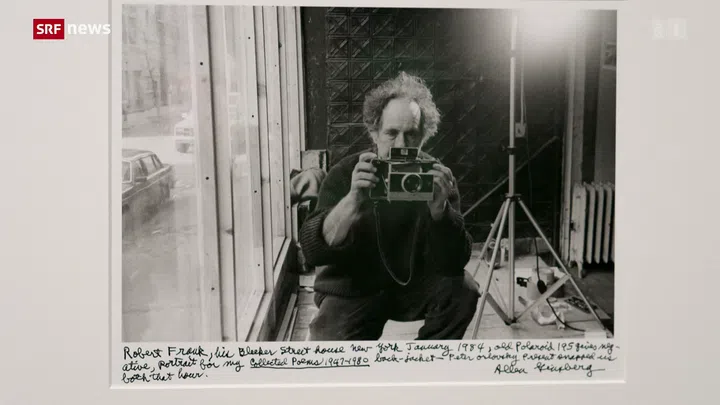 SRF news
Robert Frank, his Bleeker Street house new York January 1984, old Polaroid 195 gives neg-
ative, portrait for my Collected Poems 1947-1980 back-jacket — Peter orlovsky Present snapped us
both that hour. Allen Ginsberg